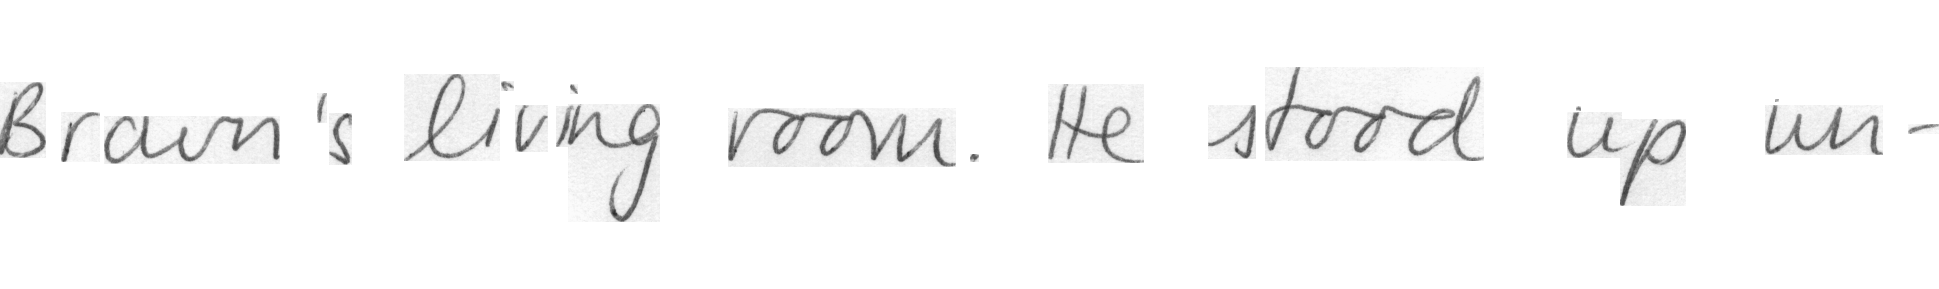 Braun's living room. He stood up un-